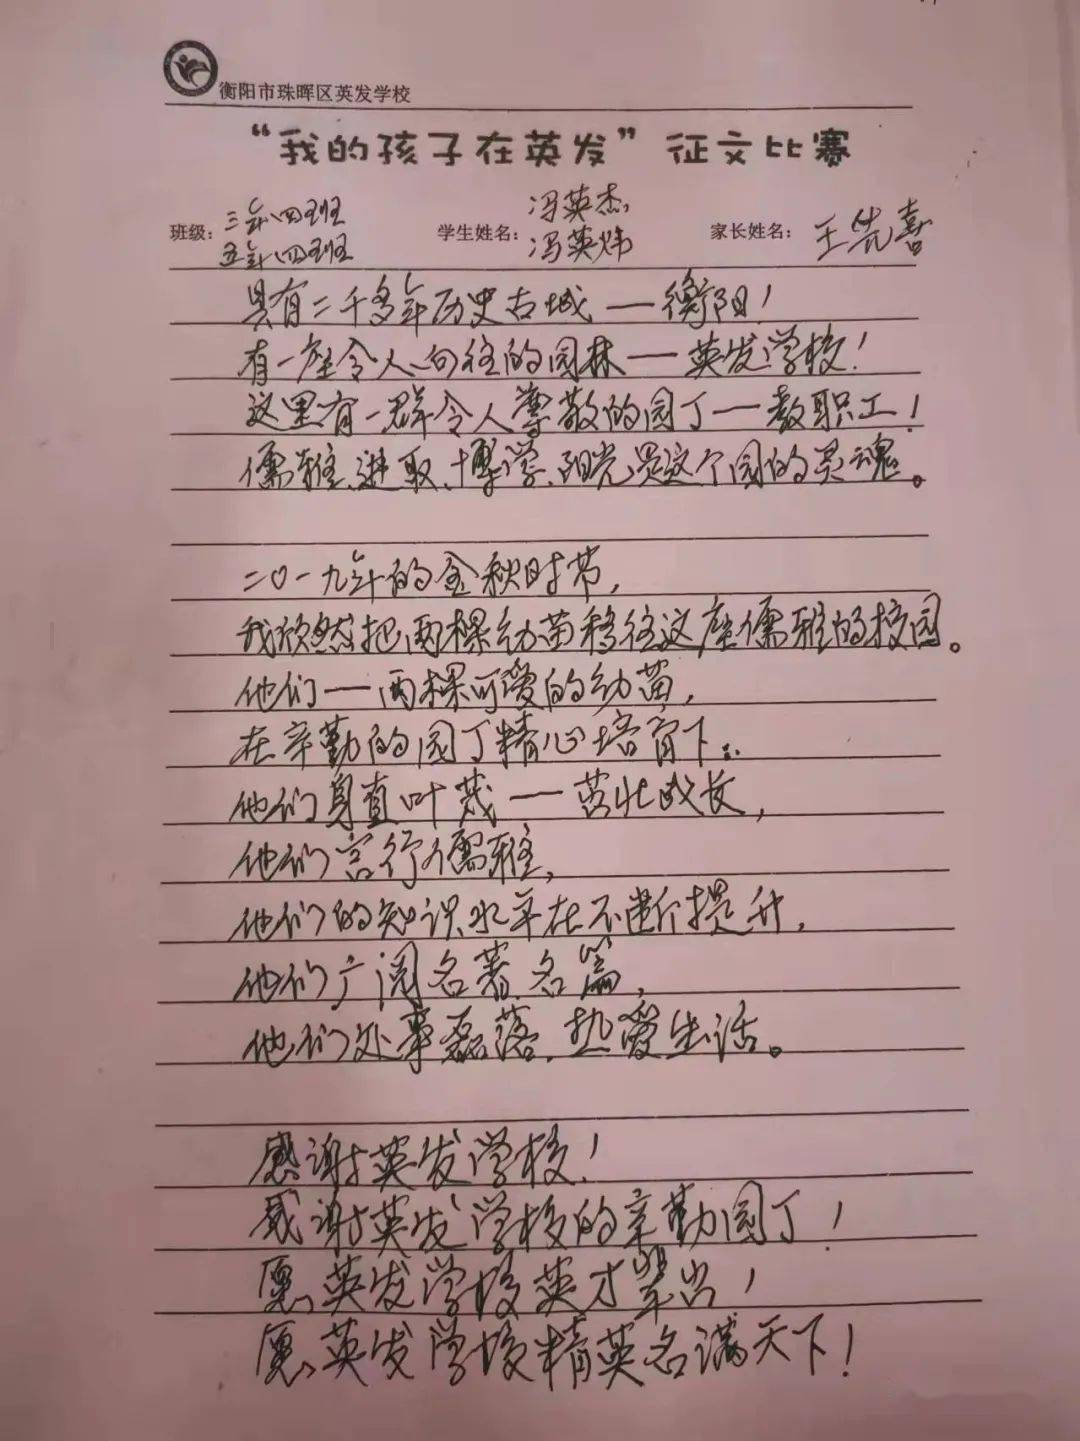 衡阳市珠晖区英发学校
“我的孩子在英发”征文比赛
班级：三年四班 五年四班 学生姓名：冯英杰， 冯英炜 家长姓名：王先喜
具有二千多年历史古城——衡阳！
有一座令人向往的园林——英发学校！
这里有一群令人尊敬的园丁——教职工！
儒雅、进取、博学、阳光是这个园的灵魂。
二〇一九年的金秋时节，
我欣然把两棵幼苗移往这座儒雅的校园。
他们——两棵可爱的幼苗，
在辛勤的园丁精心培育下：
他们身直叶茂——茁壮成长，
他们言行儒雅，
他们的知识水平在不断提升，
他们广阅名著、名篇，
他们处事磊落，热爱生活。
感谢英发学校！
感谢英发学校的辛勤园丁！
愿英发学校英才辈出！
愿英发学校精英名满天下！